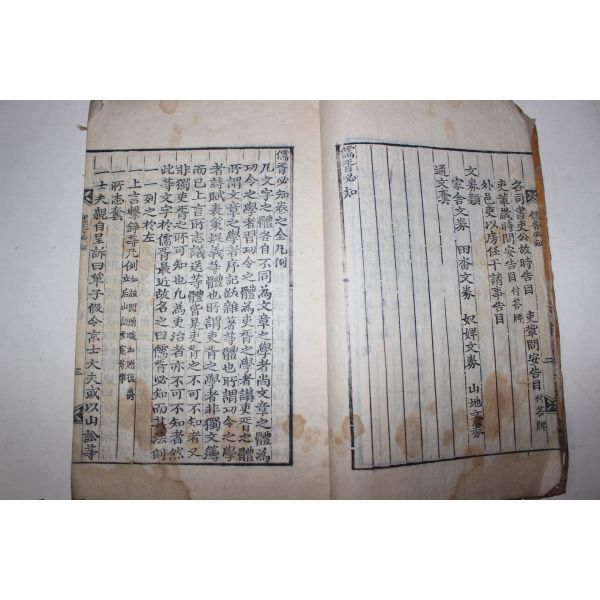 各司書吏公故時告目
吏輩歲時問安告目 付答牌 吏輩問安告目 付答牌
外邑吏以房任干請事告目
文券類
家舍文券 田畓文券 奴婢文券 山地文券
通文套
儒胥必知
儒胥必知卷之全凡例
凡文字之體各自不同為文章之學者尚文章之體為
功令之學者習功令之體為吏胥之學者講吏胥之體
所謂文章之學者序記跋雜著等體也所謂功令之學
者詩賦表策疑義等體也所謂吏胥之學者非獨文簿
而已上言所志議送等體皆是吏胥之不可不知者又
非獨吏胥之所可知也凡為吏治者亦不可不知者然
此等文字於儒胥最近故名之曰儒胥必知而其法例
一一列之於左
一上言擊錚等凡例
一所志套
一士夫親自呈訴曰單子假令京士大夫或以山訟等
三
二